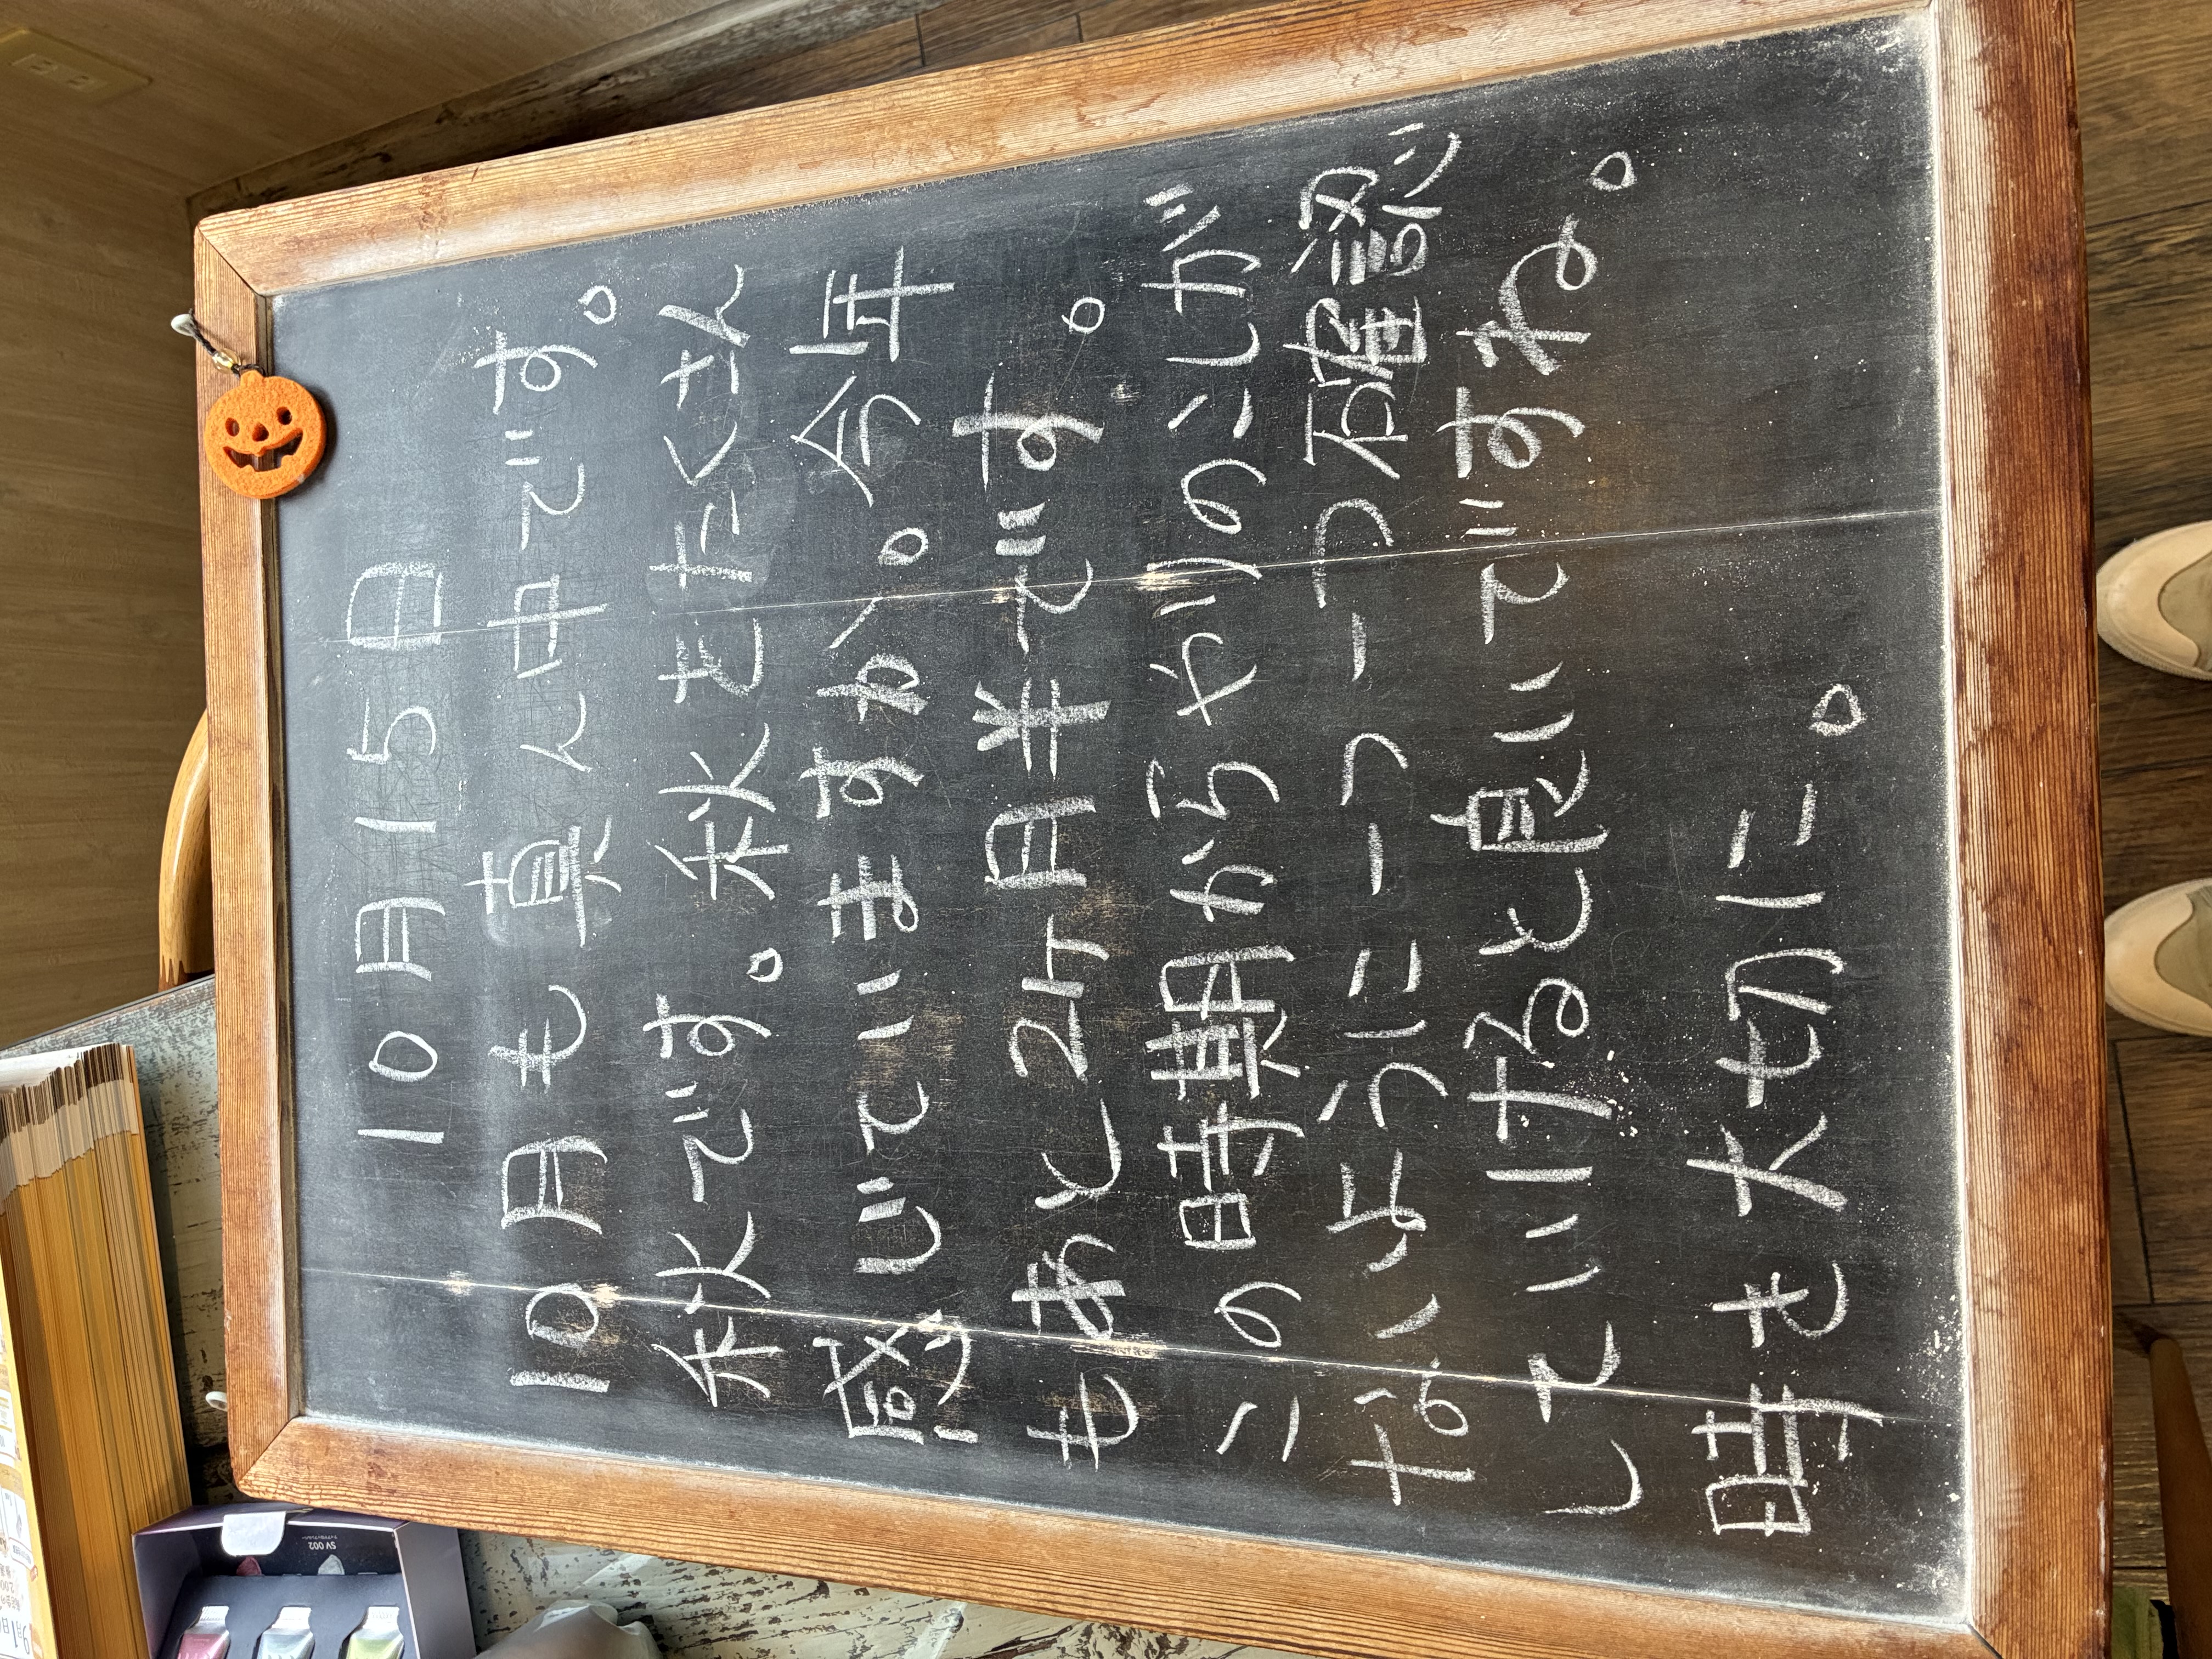 10月15日
10月も真ん中です。
秋です。秋をたくさん
感じていますか。今年
もあと2ヶ月半です。
この時期からやりのこしが
ないように一つ一つ確認
していけると良いですね。
時を大切に。
SV 002